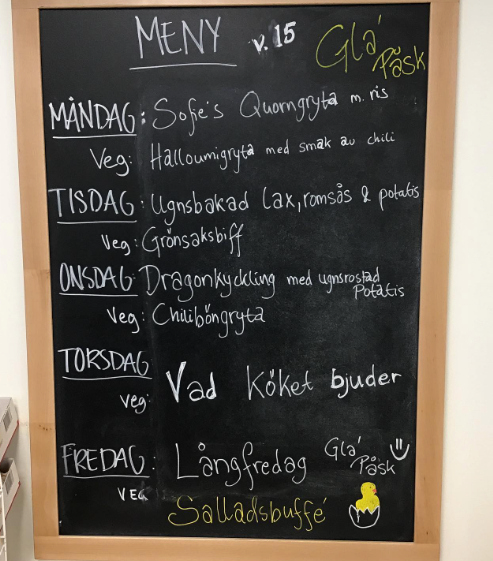 MENY v. 15 Gla' Påsk
MÅNDAG: Sofie's Quorngryta m. ris
Veg: Halloumigryta med smak av chili
TISDAG: Ugnsbakad Lax, romsås & potatis
Veg: Grönsaksbiff
ONSDAG: Dragonkyckling med ugnsrostad
Potatis
Veg: Chiliböngryta
TORSDAG
Vad köket bjuder
Veg:
FREDAG: Långfredag Gla' Påsk
VEG
Salladsbuffé